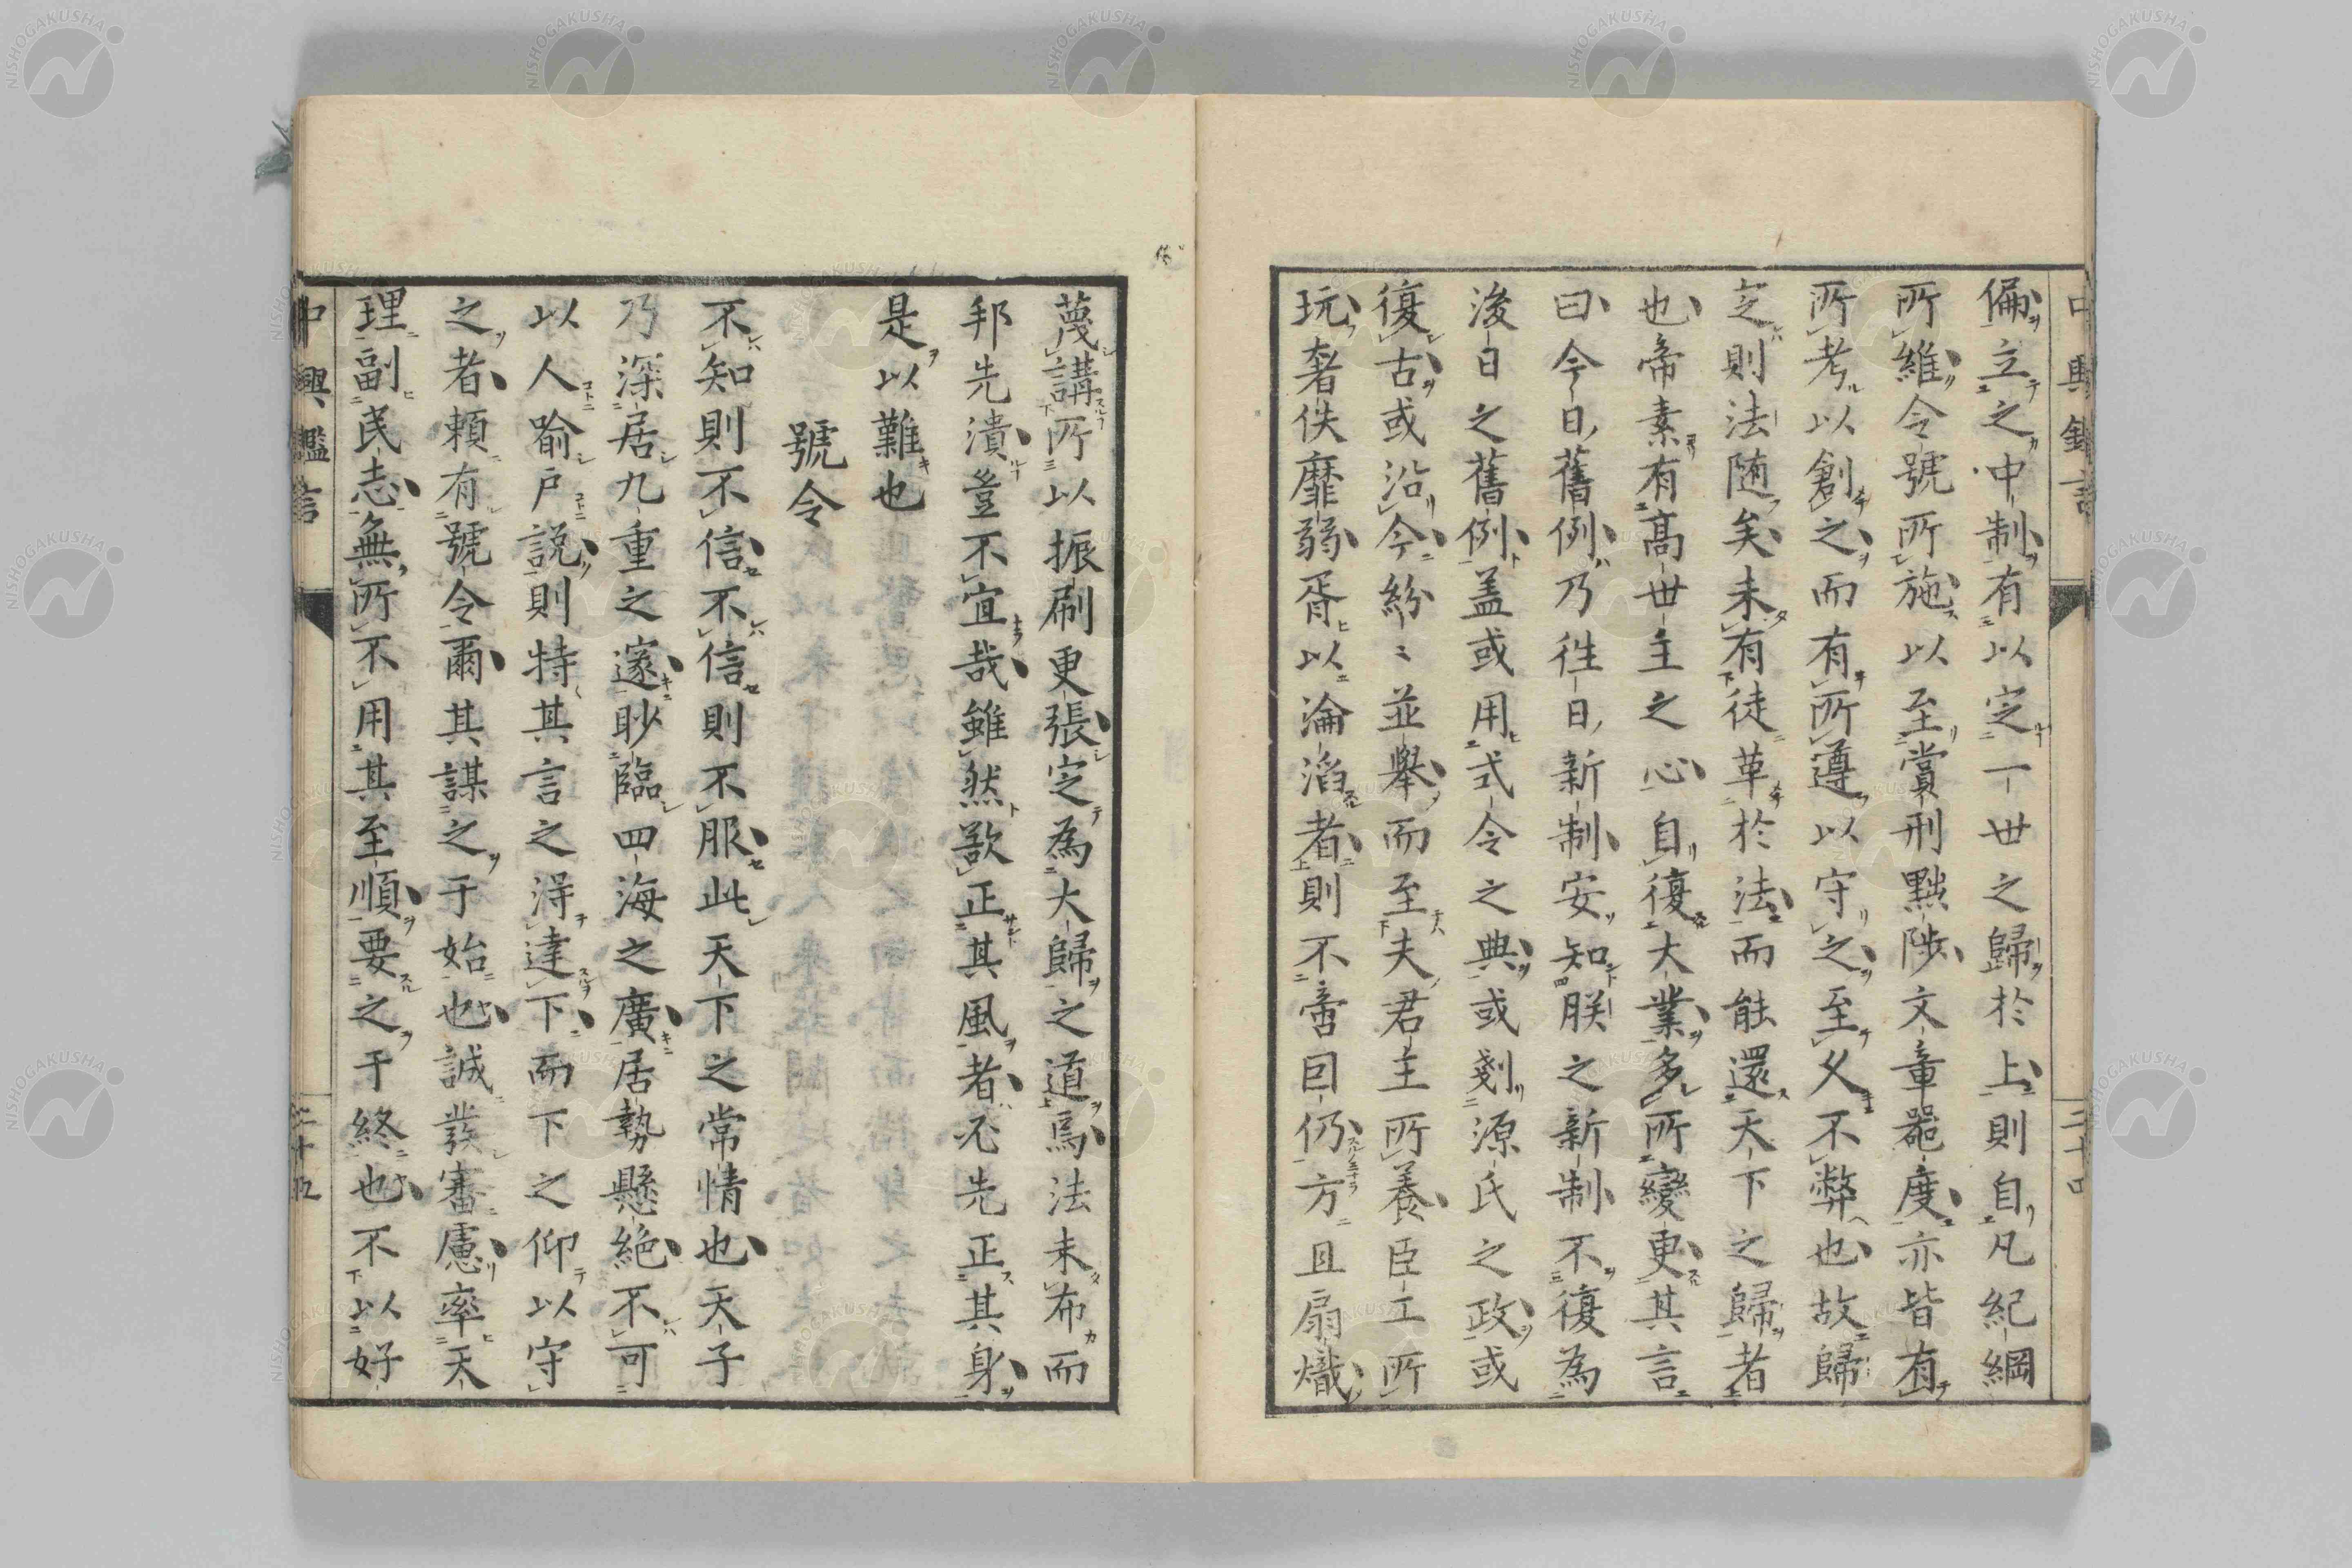 偏立之中制有以定一世之歸於上則自凡紀綱
所維令號所施以至賞刑黜陟文章器度亦皆有
所考以創之而有所遵以守之至久不弊也故歸
定則法随矣未有徒草於法而能還天下之歸者
也帝素有高世主之心自復大業多所變更其言
曰今日舊例乃徃日新制安知朕之新制不復為
後日之舊例盖或用式令之典或剗源氏之政或
復古或沿今紛〻並舉而至夫君主所養臣工所
玩奢佚靡弱胥以淪滔者則不啻囙仍方且扇熾
蔑講所以振刷更張定為大歸之道焉法未布而
邦先潰豈不宜哉雖然欲正其風者必先正其身
是以難也
號令
不知則不信不信則不服此天下之常情也天子
乃深居九重之邃眇臨四海之廣居勢懸絶不可
以人喻戶說則特其言之淂達下而下之仰以守
之者頼有號令爾其謀之于始也誠發審慮率天
理副民志無所不用其至順要之于終也不以好
中興鑑言
三十五